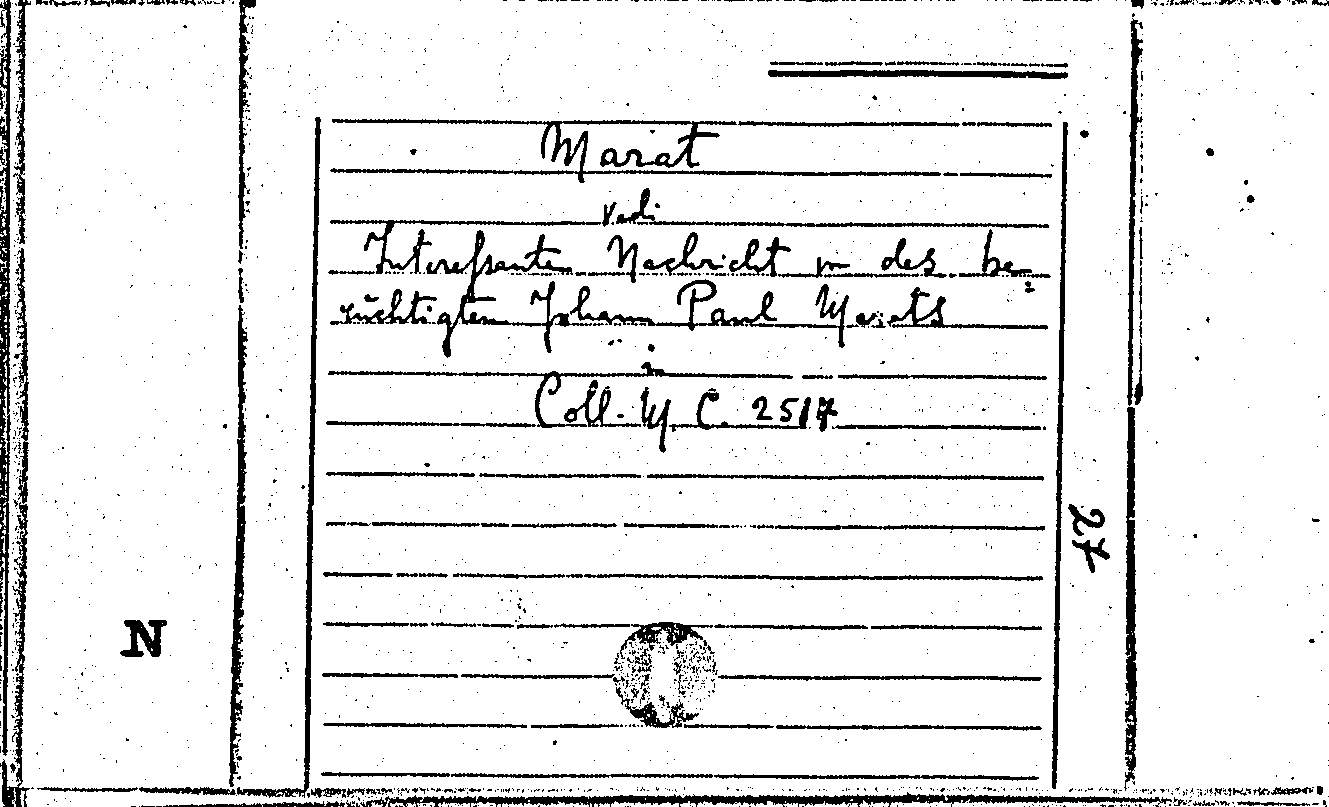 Marat
vedi
Interessanten Nachricht von des be=
rüchtigten Johann Paul Marats
in
Coll. M. C. 2517
27
N